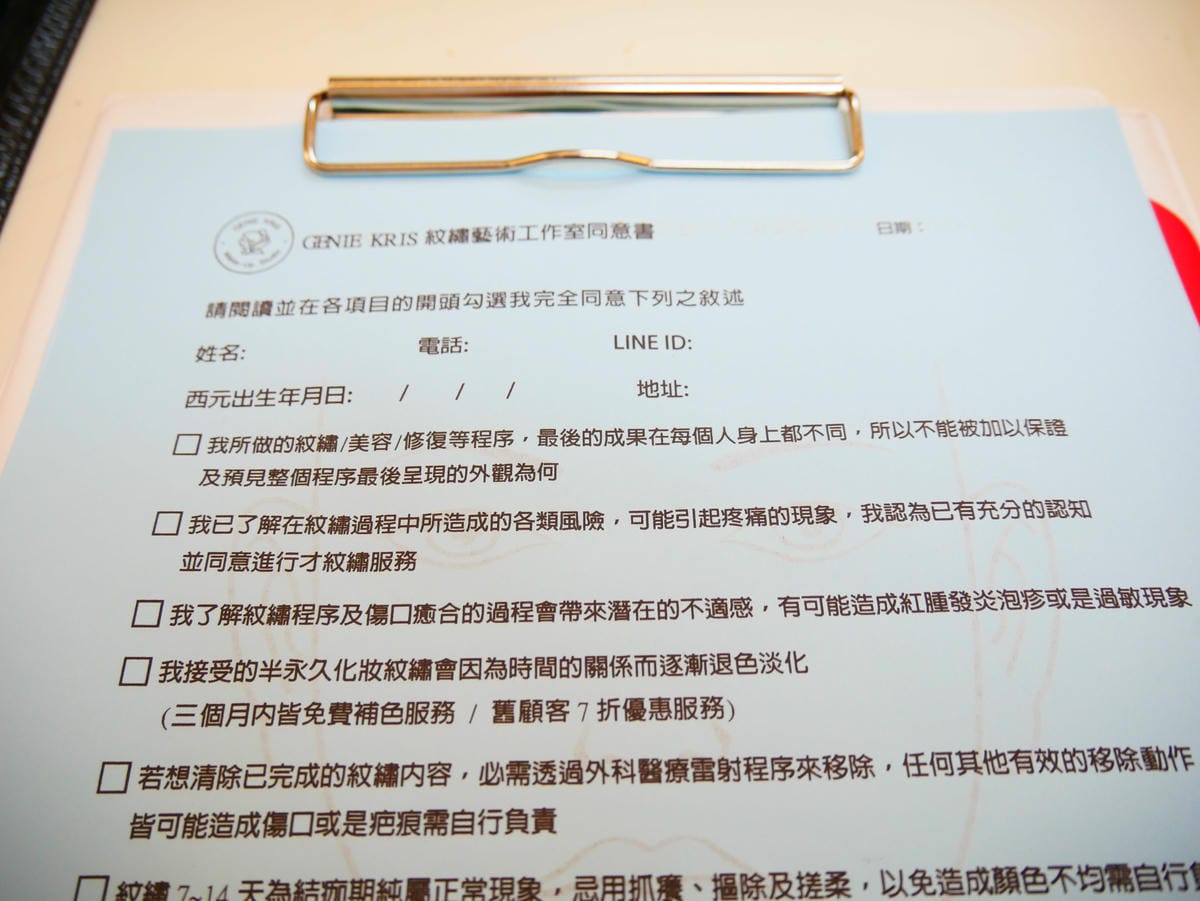 GENIE KRIS 紋繡藝術工作室同意書 日期：
請閱讀並在各項目的開頭勾選我完全同意下列之敘述
姓名: 電話: LINE ID:
西元出生年月日: / / / 地址:
□ 我所做的紋繡/美容/修復等程序，最後的成果在每個人身上都不同，所以不能被加以保證
及預見整個程序最後呈現的外觀為何
□ 我已了解在紋繡過程中所造成的各類風險，可能引起疼痛的現象，我認為已有充分的認知
並同意進行才紋繡服務
□ 我了解紋繡程序及傷口癒合的過程會帶來潛在的不適感，有可能造成紅腫發炎泡疹或是過敏現象
□ 我接受的半永久化妝紋繡會因為時間的關係而逐漸退色淡化
(三個月內皆免費補色服務 / 舊顧客7折優惠服務)
□ 若想清除已完成的紋繡內容，必需透過外科醫療雷射程序來移除，任何其他有效的移除動作
皆可能造成傷口或是疤痕需自行負責
□ 紋繡7~14天為結痂期純屬正常現象，忌用抓癢、摳除及搓柔，以免造成顏色不均需自行負